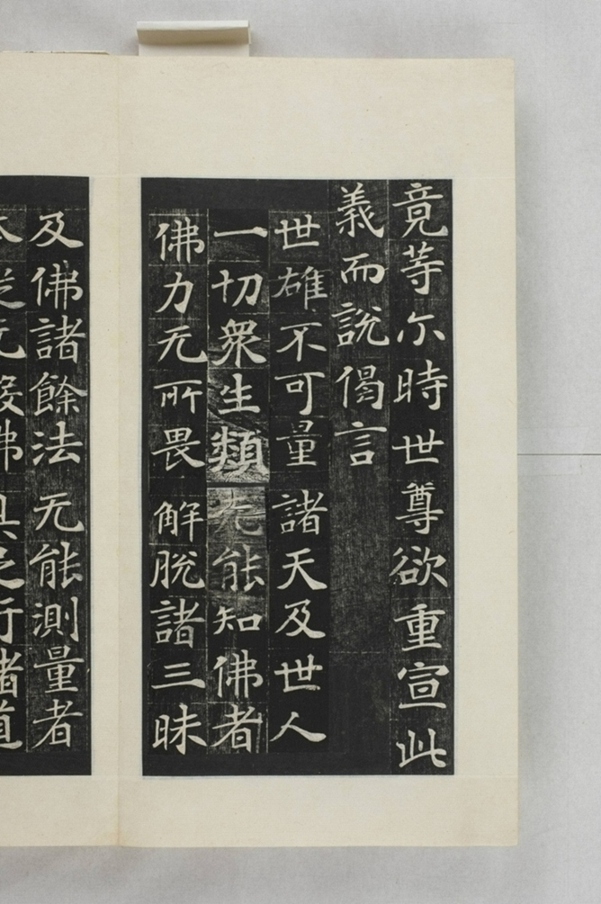 竟等尒時世尊欲重宣此
義而說偈言
世雄不可量諸天及世人
一切衆生類无能知佛者
佛力无所畏解脫諸三昧
及佛諸餘法无能測量者
本從无數佛具足行諸道